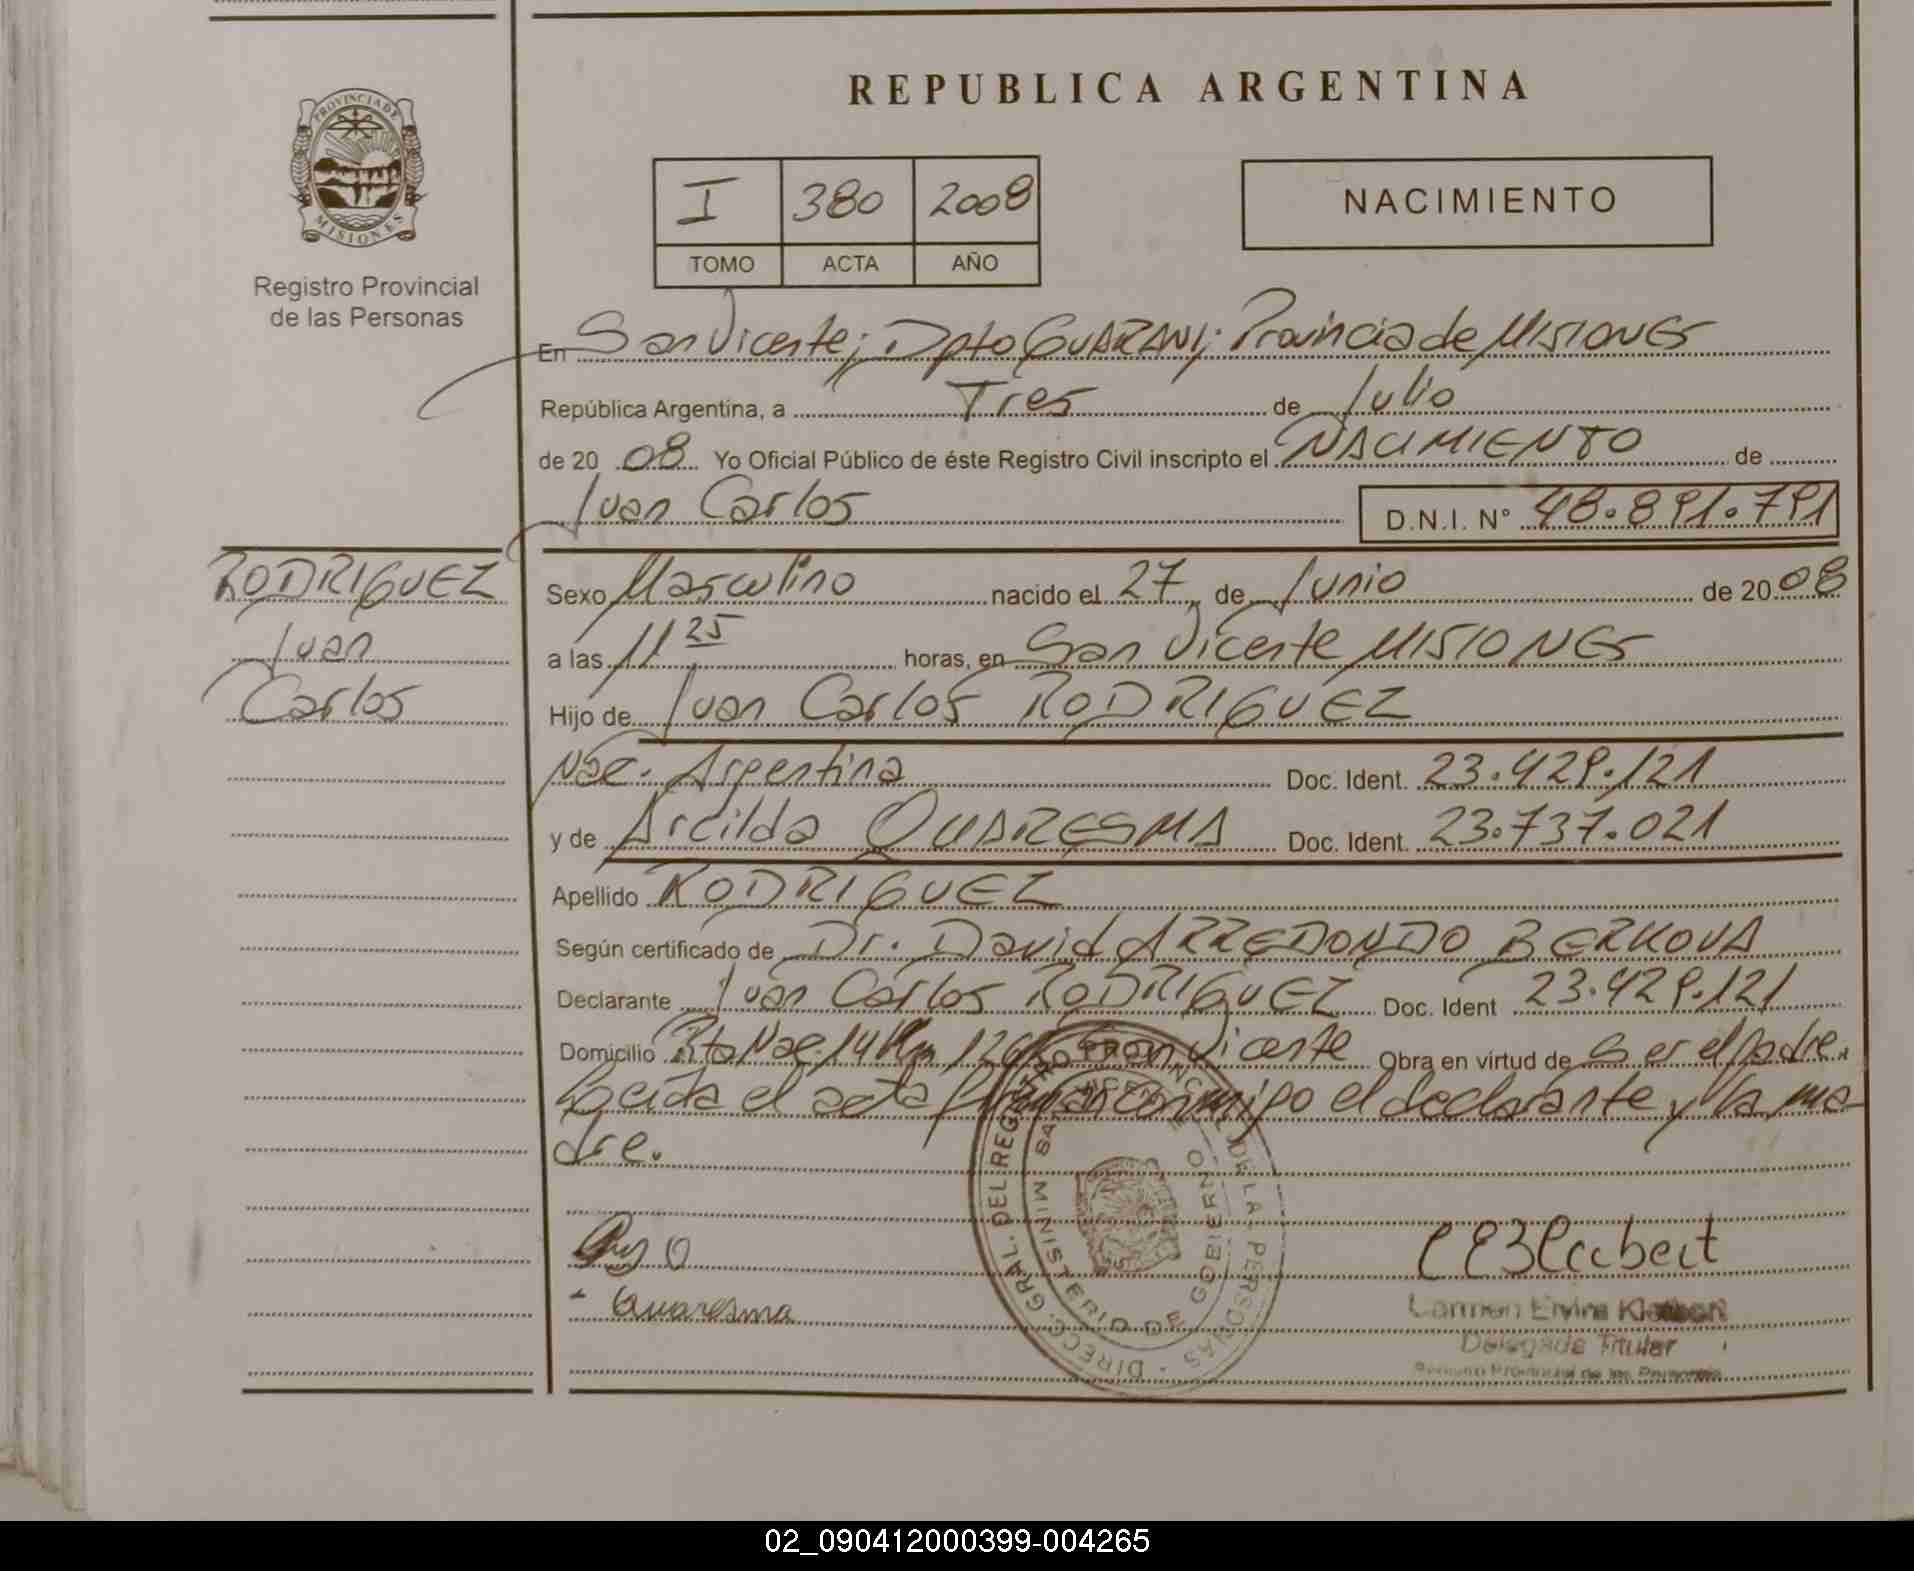 REPUBLICA ARGENTINA
PROVINCIA DE
MISIONES
Registro Provincial
de las Personas
I 380 2008
TOMO ACTA AÑO
NACIMIENTO
En San Vicente; Dpto GUARANI; Provincia de MISIONES
República Argentina, a Tres de Julio
de 20 08 Yo Oficial Público de éste Registro Civil inscripto el NACIMIENTO de
Juan Carlos D.N.I. N° 48.891.791
RODRIGUEZ
Juan
Carlos
Sexo Masculino nacido el 27 de Junio de 20 08
a las 11 25 horas, en San Vicente MISIONES
Hijo de Juan Carlos RODRIGUEZ
Nac. Argentina Doc. Ident. 23.429.121
y de Arcilda QUARESMA Doc. Ident. 23.737.021
Apellido RODRIGUEZ
Según certificado de Dr. David ARREDONDO BERKOVA
Declarante Juan Carlos RODRIGUEZ Doc. Ident 23.429.121
Domicilio Rta Nac. 14 Km San Vicente Obra en virtud de Ser el padre.
el acta firman conmigo el declarante y la ma-
dre.
DIRECC. GRAL. DEL REGISTRO PROVINCIAL DE LA PERSONAS
MINISTERIO DE GOBIERNO
Quaresma
Carmen Elvira
Delegada Titular
Registro Provincial de las Personas
02_090412000399-004265